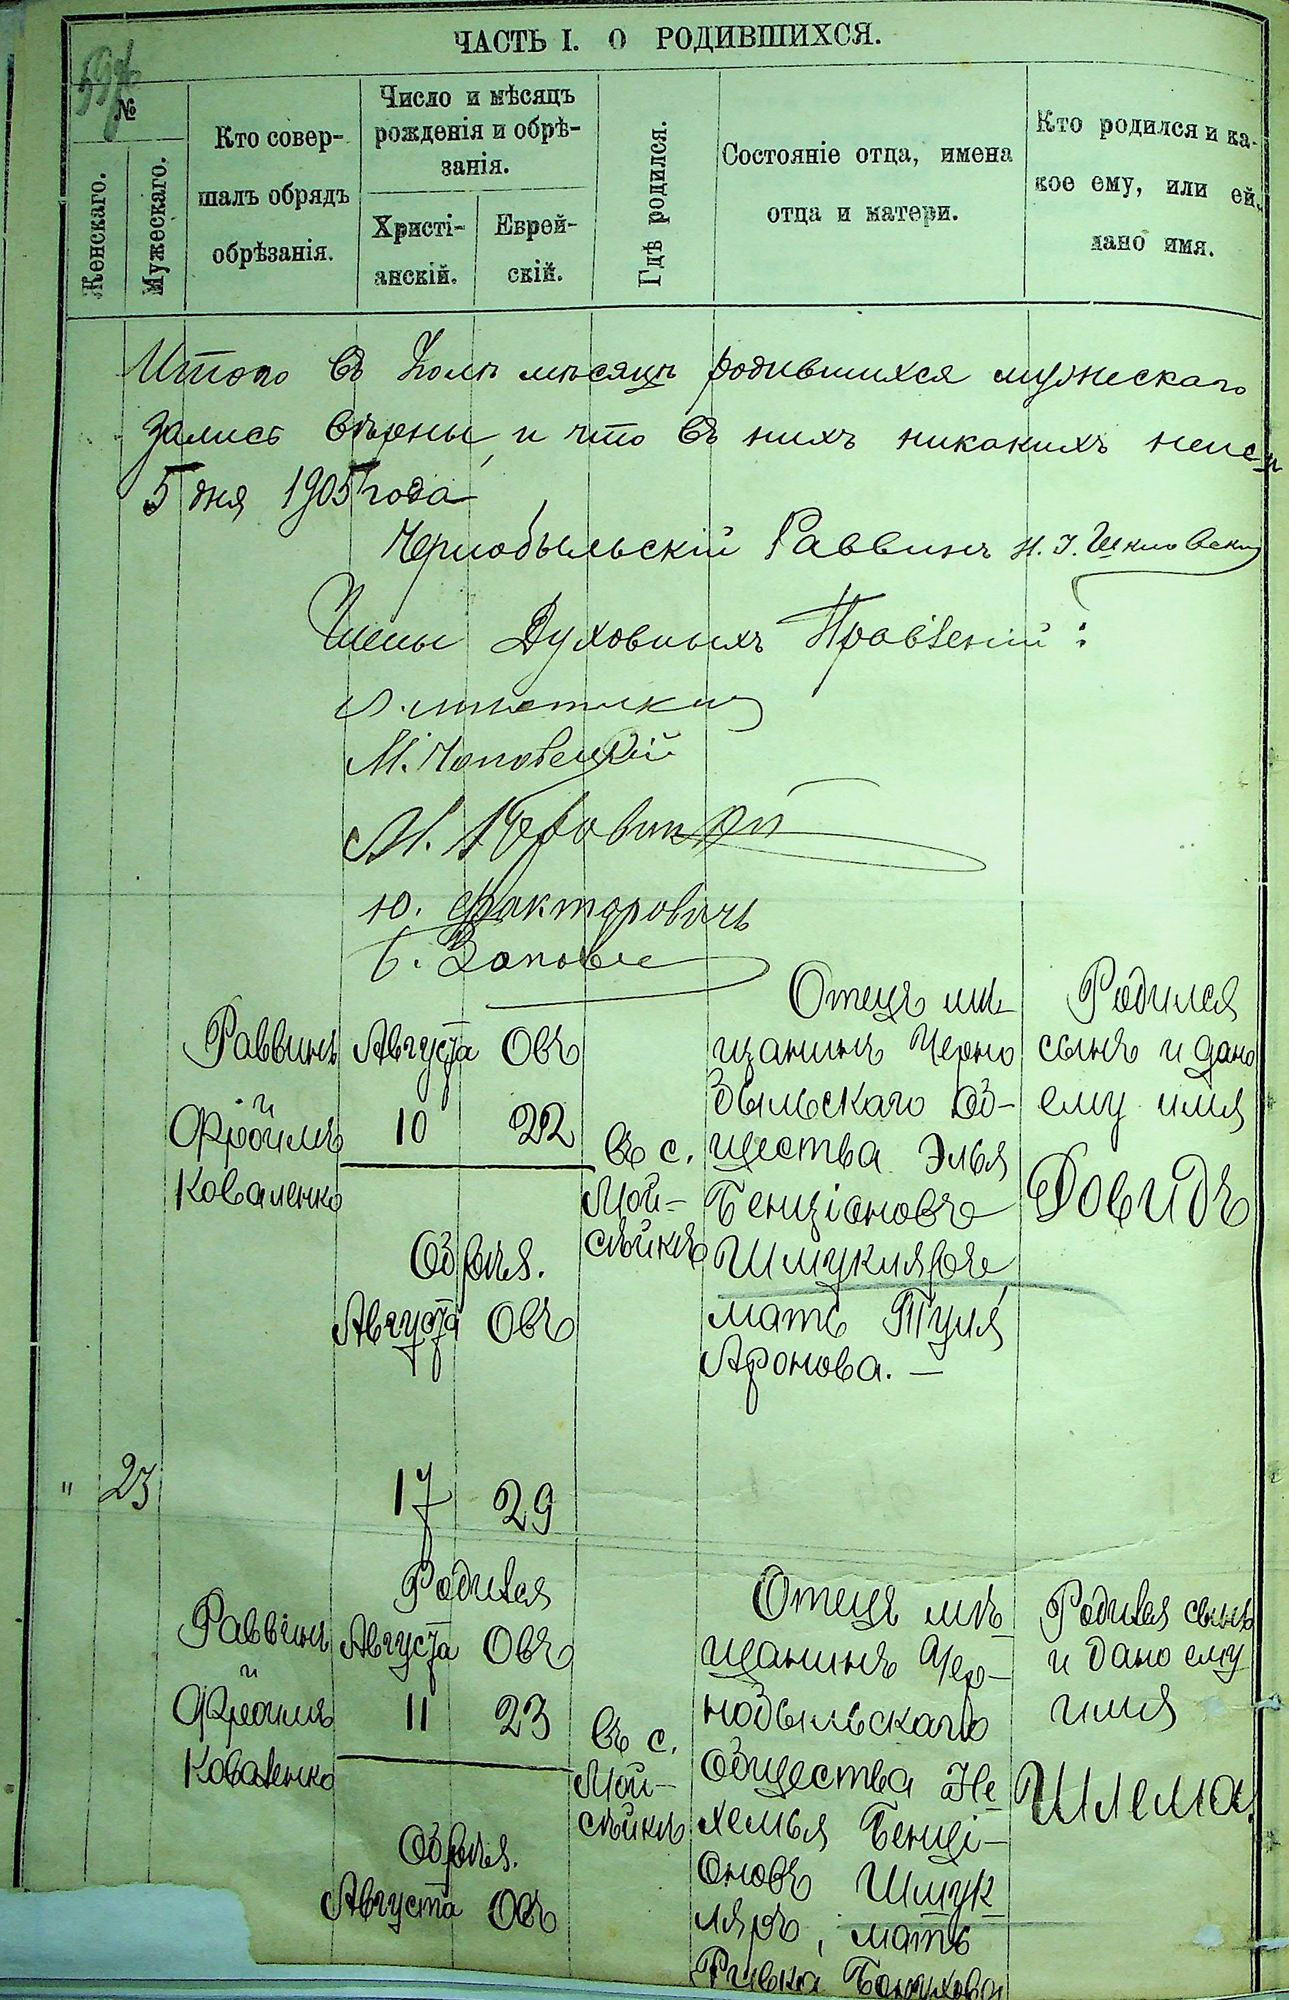 ЧАСТЬ I. О РОДИВШИХСЯ.
№
Женскаго.
Мужескаго.
Кто совер-
шалъ обрядъ
обрѣзанія.
Число и мѣсяцъ
рожденія и обрѣ-
занія.
Христі-
анскій.
Еврей-
скій.
Гдѣ родился.
Состояніе отца, имена
отца и матери.
Кто родился и ка-
кое ему, или ей,
дано имя.
Итого въ Іюлѣ мѣсяцѣ родившихся мужескаго
запись вѣрны, и что въ нихъ никакихъ неисп
5 дня 1905 года
Чернобыльскій Раввинъ
Члены Духовныхъ Правленій:
М. Чоповецкій
Ю. Факторовичъ
Раввинъ
и
Фроимъ
Коваленко
Августа
10
Обрѣз.
Августа
17
Овъ
22
Овъ
29
въ с.
Мой-
сѣйкѣ
Отецъ мѣ-
щанинъ Черно
быльскаго об-
щества Элья
Бенціоновъ
Шмукляръ,
мать Туля
Аронова. —
Родился
сынъ и дано
ему имя
Довидъ
" 23
Раввинъ
и
Фроимъ
Коваленко
Родился
Августа
11
Обрѣз.
Августа
Овъ
23
Овъ
въ с.
Мой-
сѣйкѣ
Отецъ мѣ
щанинъ Чер-
нобыльскаго
общества Не
хемья Бенці-
оновъ Шмук
ляръ, мать
Ривка
Родился сынъ
и дано ему
имя
Шлема.